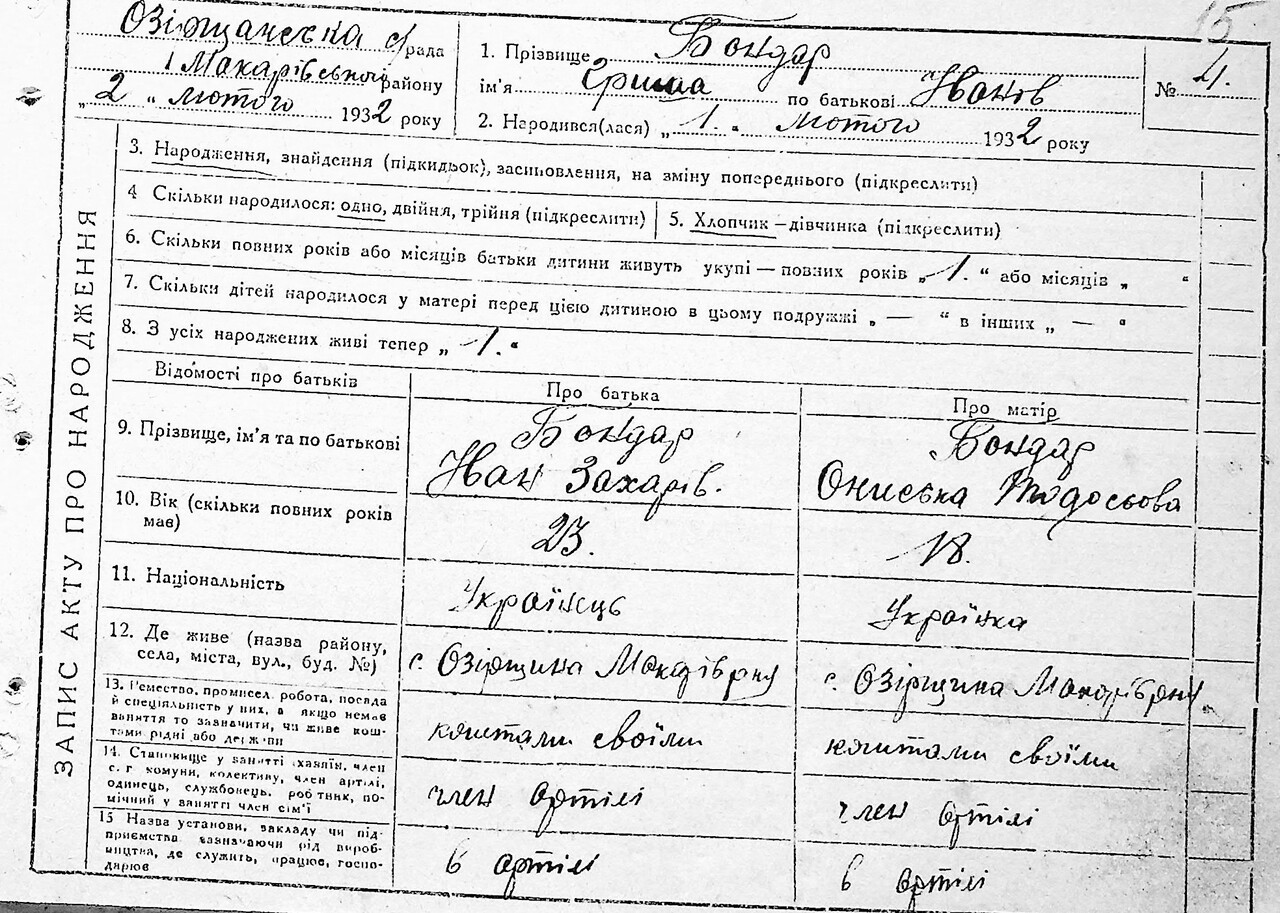 15
Озірщанська с/рада
і Макарівського району
„2“ лютого 1932 року
1. Прізвище Бондар
ім'я Гриша по батькові Іванів
2. Народився(лася) „1.“ лютого 1932 року
№ 4.
ЗАПИС АКТУ ПРО НАРОДЖЕННЯ
3. Народження, знайдення (підкидьок), засиновлення, на зміну попереднього (підкреслити)
4 Скільки народилося: одно, двійня, трійня (підкреслити)
5. Хлопчик – дівчинка (підкреслити)
6. Скільки повних років або місяців батьки дитини живуть укупі — повних років „1.“ або місяців „ “
7. Скільки дітей народилося у матері перед цією дитиною в цьому подружжі „ — “ в інших „ — “
8. З усіх народжених живі тепер „1.“
Відомості про батьків
Про батька
Про матір
9. Прізвище, ім'я та по батькові
Бондар
Іван Захарів.
Бондар
Ониська Тодосьова
10. Вік (скільки повних років
має)
23.
18.
11. Національність
Українець
Українка
12. Де живе (назва району,
села, міста, вул., буд. №)
с. Озірщина Макарів рну
с. Озірщина Макарів рну.
13. Ремество, промисел, робота, посада
й спеціяльність у них, а якщо немає
заняття то зазначити, чи живе кош-
тами рідні або держави
коштами своїми
коштами своїми
14. Становище у занятті (хазяїн, член
с. г комуни, колективу, член артілі,
одинець, службовець, робітник, по-
мічний у занятті член сім'ї
член артілі
член артілі
15 Назва установи, закладу чи під-
приємства зазначаючи рід вироб-
ництва, де служить, працює, госпо-
дарює
в артілі
в артілі